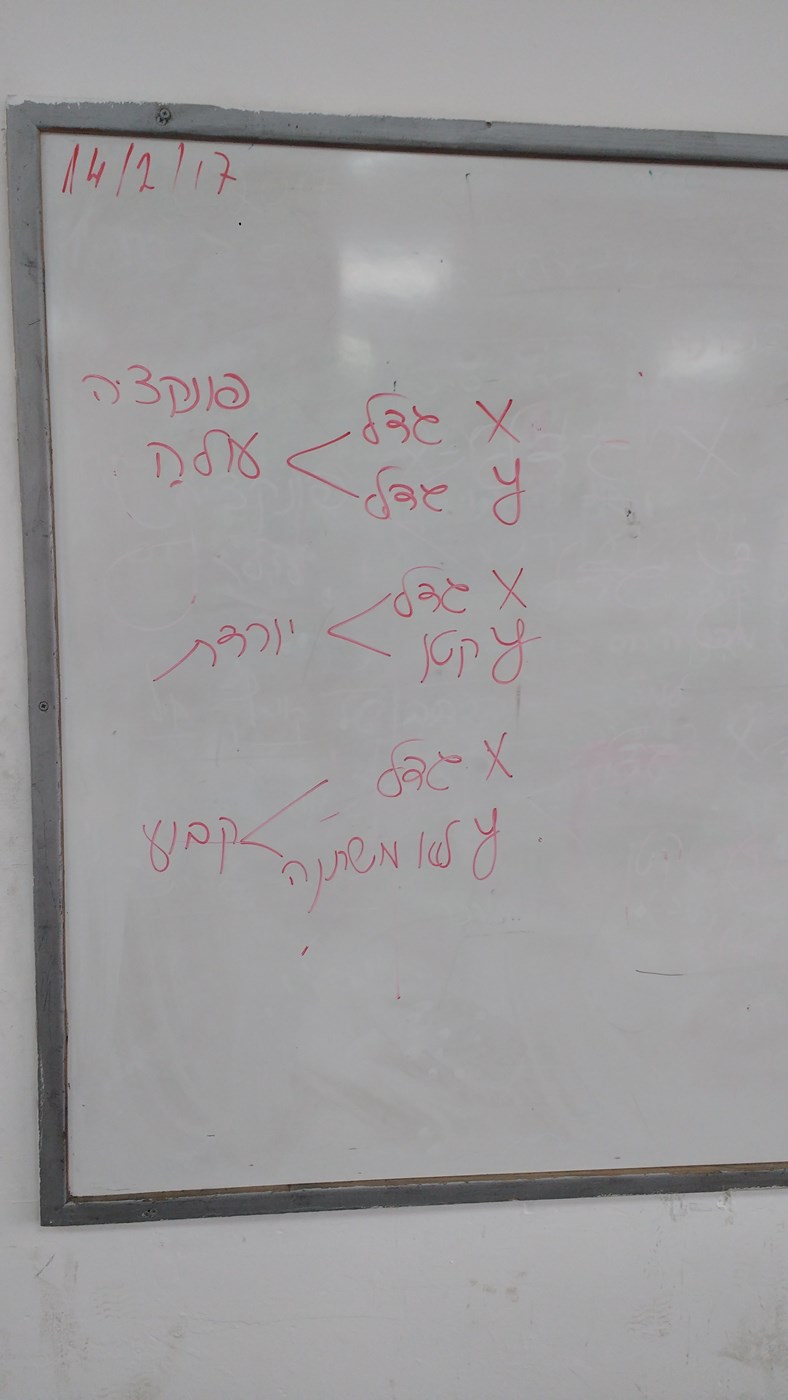 14/2/17
פונקציה
X גדל
עולה
y גדל
X גדל
יורדת
y קטן
X גדל
קבוע
y לא משתנה